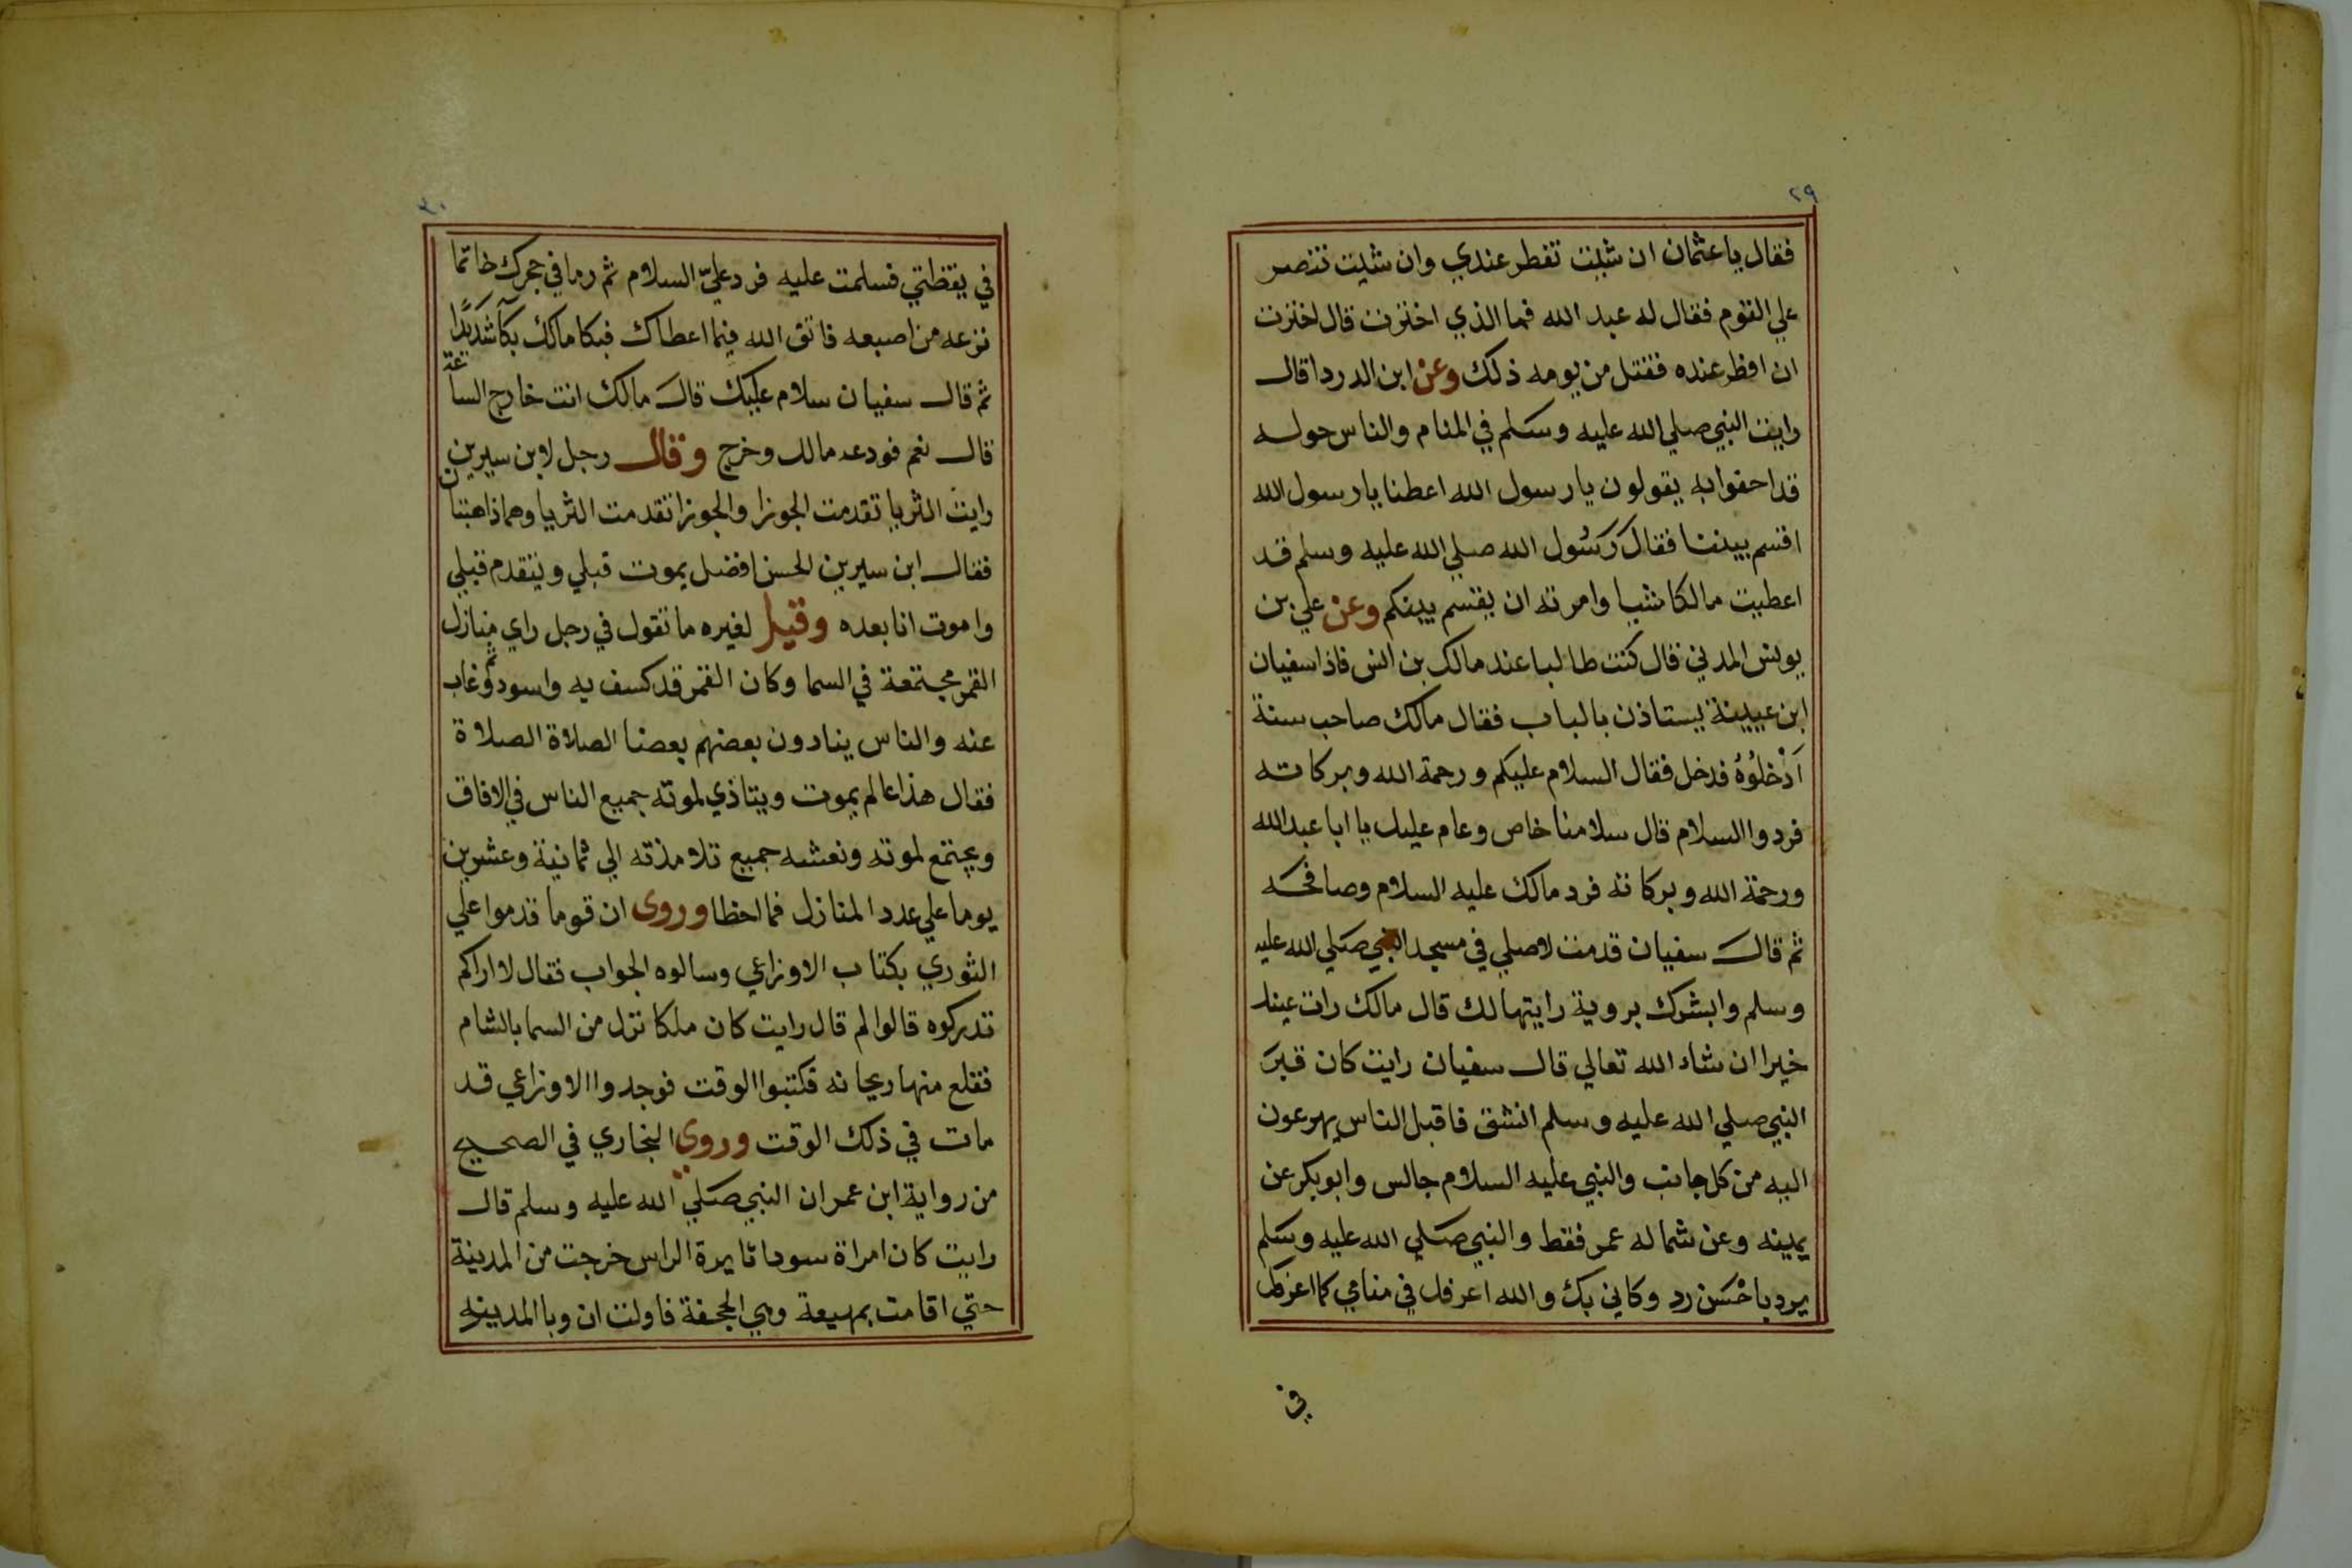 ٢٩
فقال يا عثمان ان شيت تفطر عندي وان شيت تنصر
علي القوم فقال له عبد الله فما الذي اخترت قال اخترت
ان افطر عنده فقتل من يومه ذلك وعن ابن الدردا قال
رايت النبي صلي الله عليه وسلم في المنام والناس حوله
قد احفوا به يقولون يا رسول الله اعطنا يا رسول الله
اقسم بيننا فقال رسول الله صلي الله عليه وسلم قد
اعطيت مالكا شيا وامرته ان يقسم بينكم وعن علي بن
يونس المدني قال كنت طالبا عند مالك بن انس فاذا سفيان
ابن عيينة يستاذن بالباب فقال مالك صاحب سنة
اَدْخلوُهُ فدخل فقال السلام عليكم ورحمة الله وبركاته
فردوا السلام قال سلامنا خاص وعام عليك يا ابا عبدالله
ورحمة الله وبركاته فرد مالك عليه السلام وصافحه
ثم قال سفيان قدمت لاصلي في مسجد النبي صلي الله عليه
وسلم وابشرك بروية رايتها لك قال مالك رات عيناك
خيرا ان شاء الله تعالي قال سفيان رايت كان قبر
النبي صلي الله عليه وسلم انشق فاقبل الناس يهرعون
اليه من كل جانب والنبي عليه السلام جالس وابوبكر عن
يمينه وعن شماله عمر فقط والنبي صلي الله عليه وسلم
يرد باحْسَن رد وكاني بك والله اعرفك في منامي كما اعرفك
في
٣٠
في يقظتي فسلمت عليه فرد عليّ السلام ثم رما في حجرك خاتما
نزعه من اصبعه فاتق الله فيما اعطاك فبكا مالك بكآ شديدًا
ثم قال سفيان سلام عليك قال مالك انت خارج الساعة
قال نعم فودعه مالك وخرج وقال رجل لابن سيرين
رايت الثريا تقدمت الجوزا والجوزا تقدمت الثريا وهما ذاهبتان
فقال ابن سيرين الحسن افضل يموت قبلي ويتقدم قبلي
واموت انا بعده وقيل لغيره ما تقول في رجل راي منازل
القمر مجتمعة في السما وكان القمر قد كسف به واسود ثم وغاب
عنه والناس ينادون بعضهم بعضا الصلاة الصلاة
فقال هذا عالم يموت ويتاذي لموته جميع الناس في الافاق
ويجتمع لموته ونعشه جميع تلامذته الي ثمانية وعشرين
يوما علي عدد المنازل فما اخطا وروى ان قوما قدموا علي
الثوري بكتاب الاوزاعي وسالوه الجواب فقال لا اراكم
تدركوه قالوا لم قال رايت كان ملكا نزل من السما بالشام
فقلع منها ريحانه فكتبوا الوقت فوجدوا الاوزاعي قد
مات في ذلك الوقت وروي البخاري في الصحيح
من رواية ابن عمر ان النبي صلي الله عليه وسلم قال
رايت كان امراة سودا ثايرة الراس خرجت من المدينة
حتي اقامت بمهيعة وهي الجحفة فاولت ان وبا المدينه